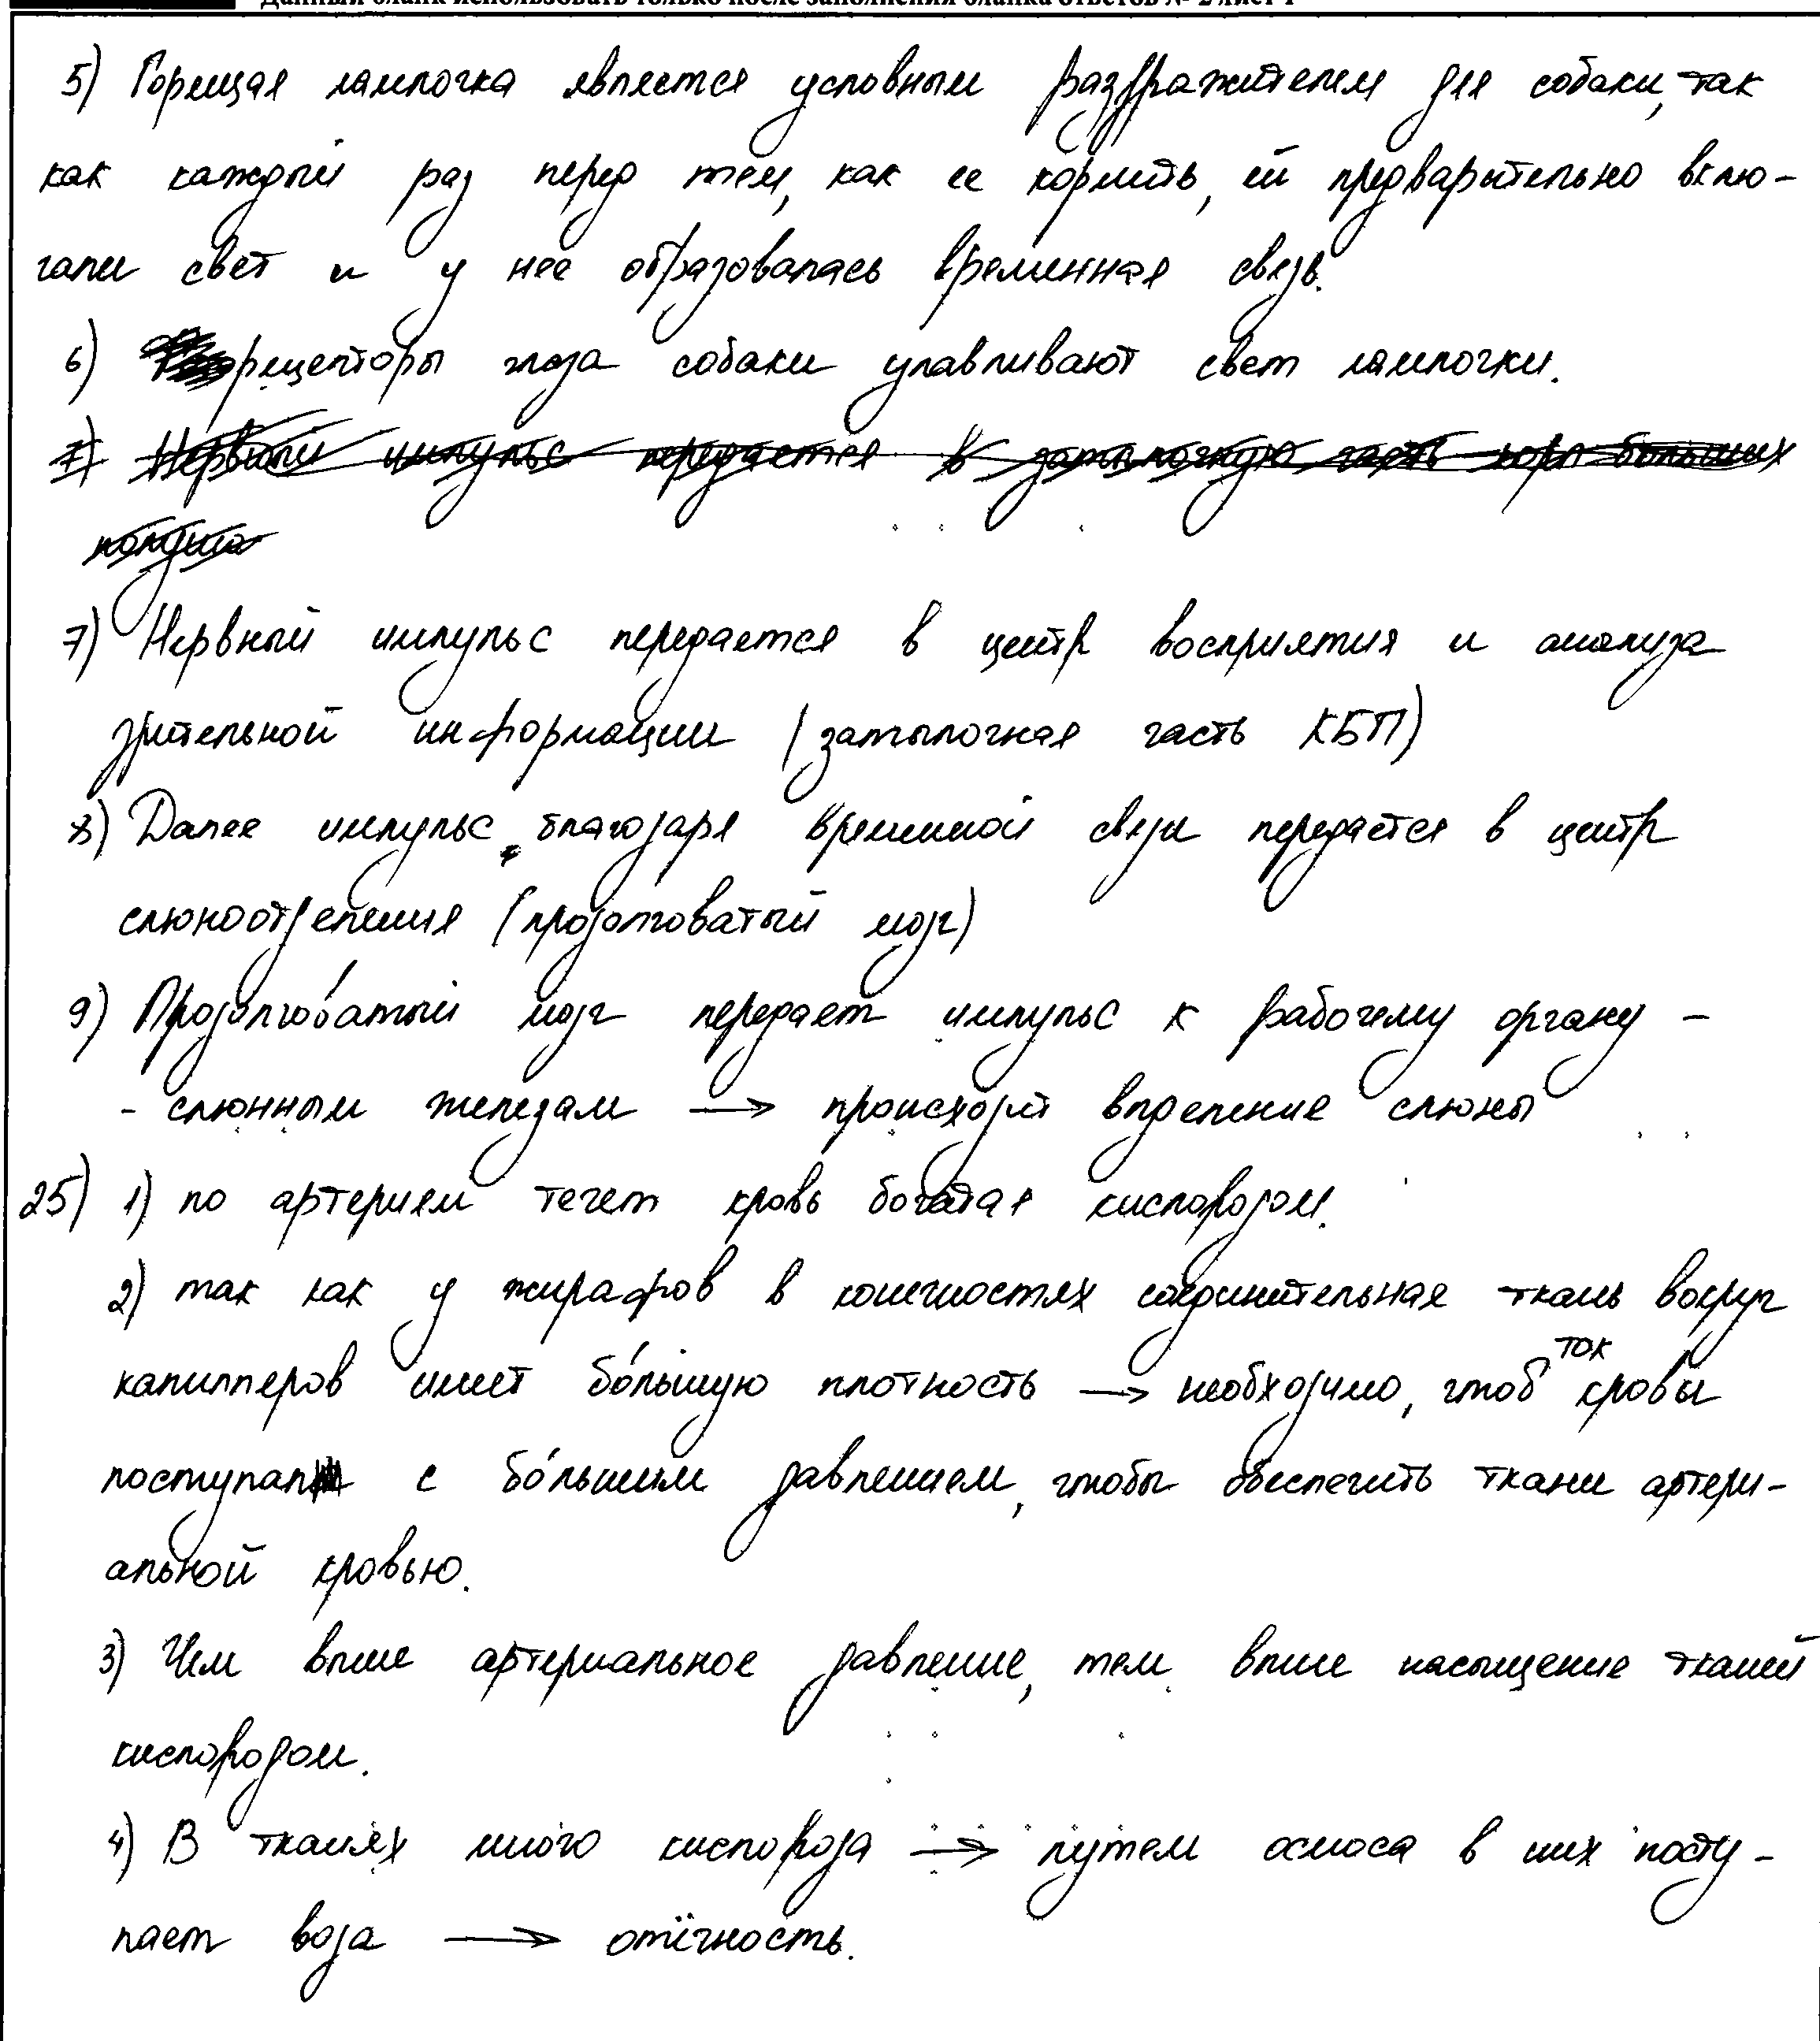 Данный бланк использовать только после заполнения бланка ответов № 2 лист 1
5) Горящая лампочка является условным раздражителем для собаки, так
как каждый раз перед тем, как ее кормить, ей предварительно вклю-
чали свет и у нее образовалась временная связь.
6) рецепторы глаза собаки улавливают свет лампочки.
7) Нервный импульс передается в затылочную часть коры больших
полуша
7) Нервный импульс передается в центр восприятия и анализа
зрительной информации (затылочная часть КБП)
8) Далее импульс благодаря временной связи передается в центр
слюноотделения (продолговатый мозг)
9) Продолговатый мозг передает импульс к рабочему органу -
- слюнным железам → происходит выделение слюны
25) 1) по артериям течет кровь богатая кислородом.
2) так как у жирафов в конечностях соединительная ткань вокруг
капилляров имеет бо́льшую плотность → необходимо, чтоб ток кровы
поступал с бо́льшим давлением, чтобы обеспечить ткани артери-
альной кровью.
3) Чем выше артериальное давление, тем выше насыщение тканей
кислородом.
4) В тканях много кислорода → путем осмоса в них посту-
пает вода → отёчность.